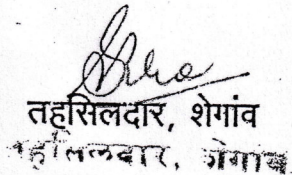 तहसिलदार, शेगांव
तहसिलदार, शेगांव